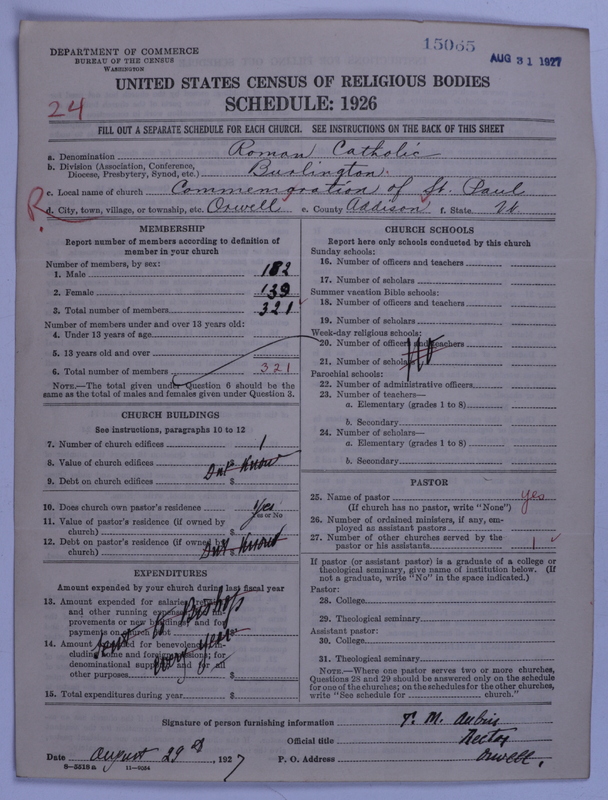 15065
AUG 31 1927
DEPARTMENT OF COMMERCE
BUREAU OF THE CENSUS
WASHINGTON
UNITED STATES CENSUS OF RELIGIOUS BODIES
SCHEDULE: 1926
24
FILL OUT A SEPARATE SCHEDULE FOR EACH CHURCH. SEE INSTRUCTIONS ON THE BACK OF THIS SHEET
a. Denomination Roman Catholic
b. Division (Association, Conference, Diocese, Presbytery, Synod, etc.) Burlington.
c. Local name of church Commemoration of St. Paul
R d. City, town, village, or township, etc. Orwell e. County Addison f. State Vt
MEMBERSHIP
Report number of members according to definition of
member in your church
Number of members, by sex:
1. Male 182
2. Female 139
3. Total number of members 321
Number of members under and over 13 years old:
4. Under 13 years of age
5. 13 years old and over
6. Total number of members 321
NOTE.—The total given under Question 6 should be
same as the total of males and females given under Question 3.
CHURCH BUILDINGS
See instructions, paragraphs 10 to 12
7. Number of church edifices 1
8. Value of church edifices $ Don't Know
9. Debt on church edifices $
10. Does church own pastor's residence Yes
Yes or No
11. Value of pastor's residence (if owned by
church) $
12. Debt on pastor's residence (if owned by
church) $
EXPENDITURES
Amount expended by your church during last fiscal year
13. Amount expended for salaries, repairs,
and other running expenses, for im-
provements or new buildings, and for
payments on church debt $
Sent to Bishop
every year
14. Amount expended for benevolences, in-
cluding home and foreign missions; for
denominational support, and for all
other purposes $
15. Total expenditures during year $
CHURCH SCHOOLS
Report here only schools conducted by this church
Sunday schools:
16. Number of officers and teachers
17. Number of scholars
Summer vacation Bible schools:
18. Number of officers and teachers
19. Number of scholars
Week-day religious schools:
20. Number of officers and teachers
21. Number of scholars
No
Parochial schools:
22. Number of administrative officers
23. Number of teachers—
a. Elementary (grades 1 to 8)
b. Secondary
24. Number of scholars—
a. Elementary (grades 1 to 8)
b. Secondary
PASTOR
25. Name of pastor yes
(If church has no pastor, write "None")
26. Number of ordained ministers, if any, em-
ployed as assistant pastors
27. Number of other churches served by the
pastor or his assistants 1
If pastor (or assistant pastor) is a graduate of a college or
theological seminary, give name of institution below. (If
not a graduate, write "No" in the space indicated.)
Pastor:
28. College
29. Theological seminary
Assistant pastor:
30. College
31. Theological seminary
NOTE.—Where one pastor serves two or more churches,
Questions 28 and 29 should be answered only on the schedule
for one of the churches; on the schedules for the other churches,
write "See schedule for church."
Signature of person furnishing information T. M. Aubin
Official title Rector
Date August 29th, 1927 P. O. Address Orwell.
8—5519a 11—9284